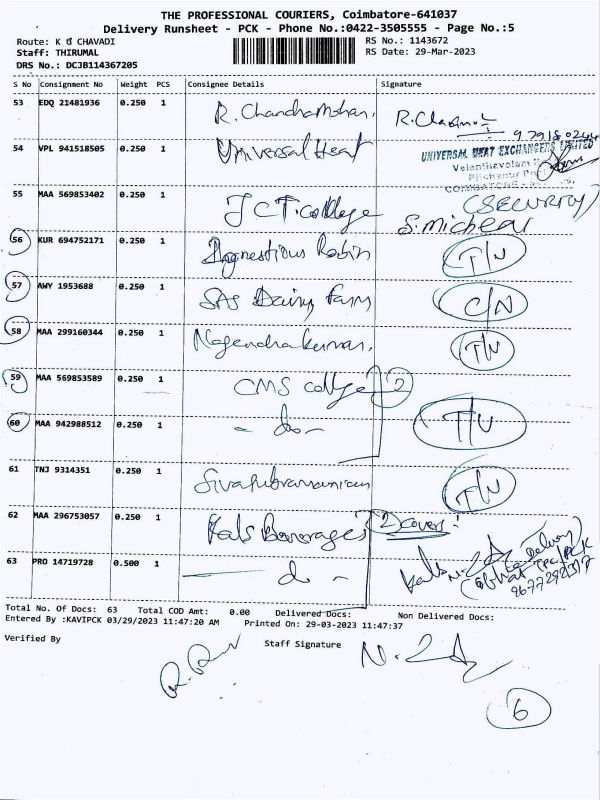 THE PROFESSIONAL COURIERS, Coimbatore-641037
Delivery Runsheet - PCK - Phone No.:0422-3505555 - Page No.:5
Route: K G CHAVADI
RS No.: 1143672
Staff: THIRUMAL
RS Date: 29-Mar-2023
DRS No.: DCJB114367205
S No Consignment No Weight PCS Consignee Details Signature
53 EDQ 22481936 0.250 1 R. Chandramohan.
54 VPL 941518505 0.250 1 Universal Heat UNIVERSAL HEAT EXCHANGERS LIMITED
55 MAA 569853402 0.250 1 JCT. college (SECURITY)
S. Micheal
56 KUR 694752171 0.250 1 Robin T/N
57 AWY 1953688 0.250 1 SAS Dairy Farm C/N
58 MAA 299160344 0.250 1 Nagendrakumar. T/N
59 MAA 569853589 0.250 1 CMS college 2
60 MAA 942988512 0.250 1 - do - T/N
61 TNJ 9314351 0.250 1 Sivasubramanian T/N
62 MAA 296753057 0.250 1 Kals Beverages 2 covers
63 PRO 14719728 0.500 1 - do -
Total No. Of Docs: 63 Total COD Amt: 0.00 Delivered Docs: Non Delivered Docs:
Entered By :KAVIPCK 03/29/2023 11:47:20 AM Printed On: 29-03-2023 11:47:37
Verified By Staff Signature
6